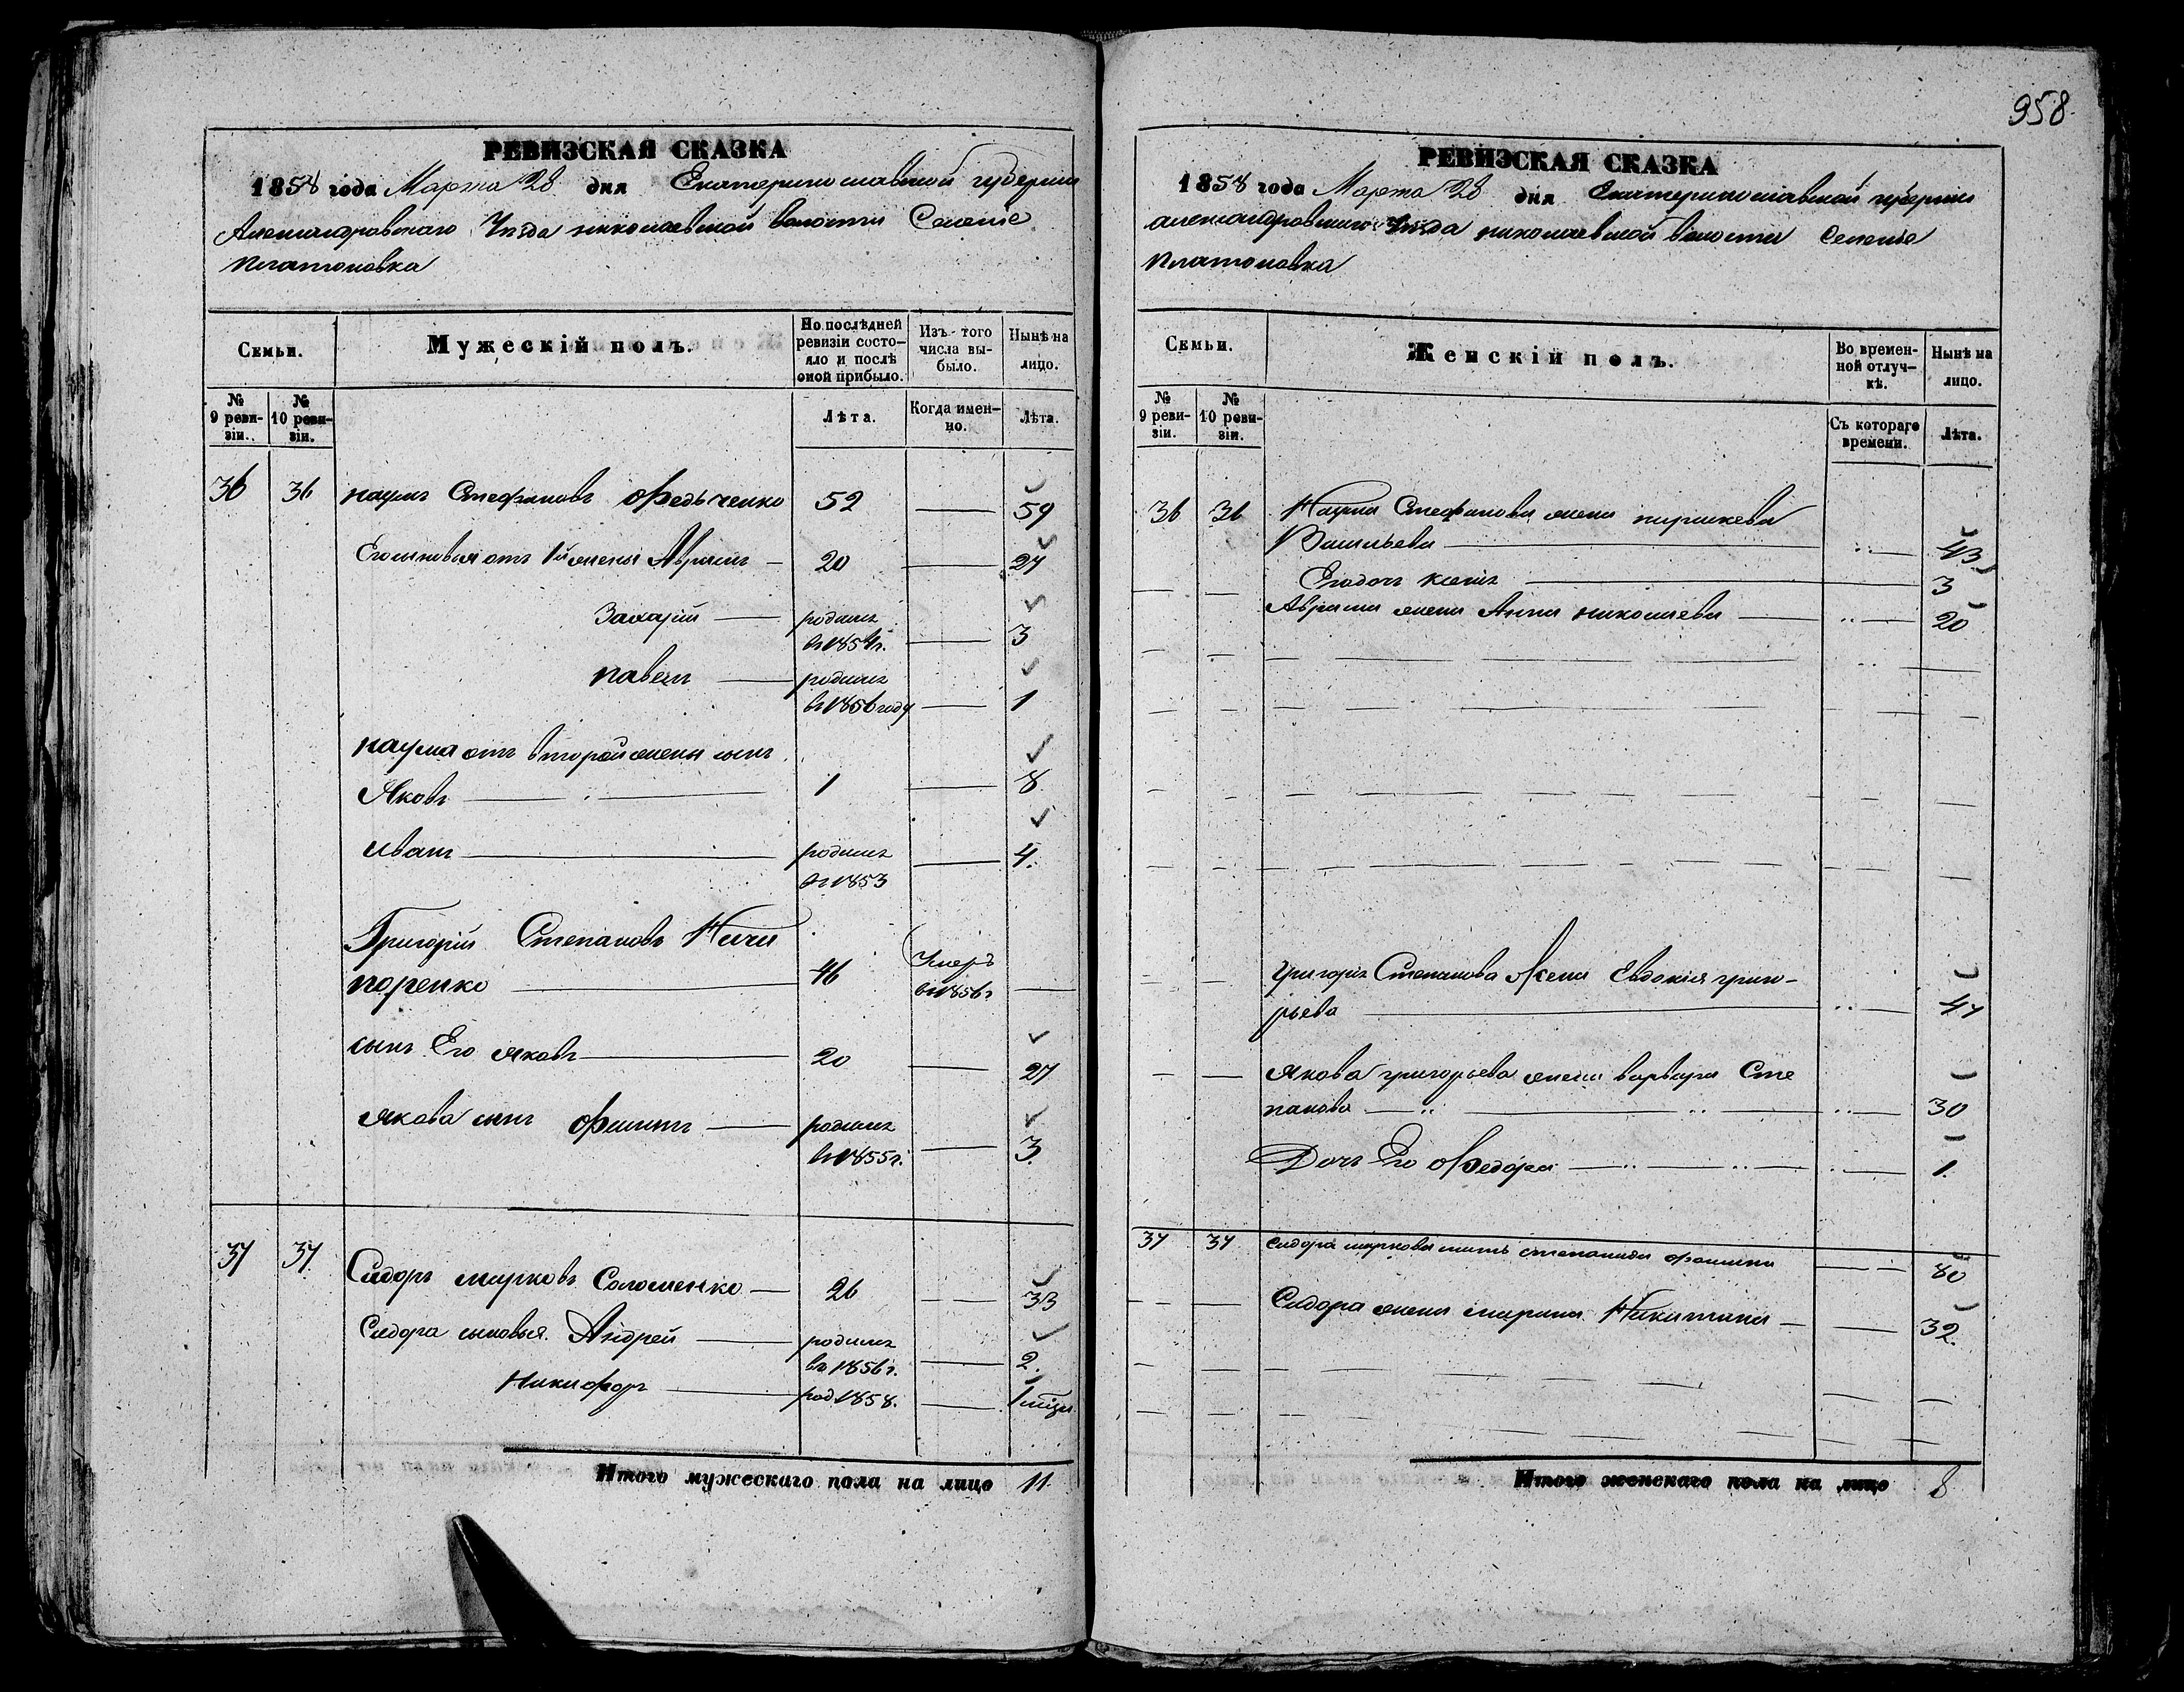 958.
РЕВИЗСКАЯ СКАЗКА
1858 года Марта 28 дня Екатеринославской губернии
Александровскаго Уѣзда николаевской волости Селеніе
Платоновка
Семьи.
Мужескій полъ.
По послѣдней
ревизіи состо-
яло и послѣ
оной прибыло.
Изъ-того
числа вы-
было.
Нынѣ на
лицо.
№
9 реви-
зіи.
№
10 реви-
зіи.
Лѣта.
Когда имен-
но.
Лѣта.
36 36 наумъ Стефановъ Федьченко 52 — 59
Его сыновья отъ 1й жены Абрамъ — 20 — 27
Захарій — родился
въ 1854г. — 3
павелъ — родился
въ 1856 году — 1
наума отъ второй жены сынъ
Яковъ — 1 — 8
Иванъ — родился
въ 1853 — 4.
Григорій Степановъ Ничи
поренко — 46 Умеръ
въ 1856г —
сынъ Его яковъ — 20 — 27
якова сынъ — родился
въ 1855г. — 3.
37 37 Сидоръ марковъ Соломенко — 26 — — 33
Сидора сыновья Андрей — родился
въ 1856г. — 2.
Никифоръ — род 1858. — 1
Итого мужескаго пола на лицо 11.
РЕВИЗСКАЯ СКАЗКА
1858 года Марта 28 дня Екатеринославской губерніи
александровскаго Уѣзда николаевской волости Селеніе
Платоновка
Семьи.
Женскій полъ.
Во времен-
ной отлуч-
кѣ.
Нынѣ на
лицо.
№
9 реви-
зіи.
№
10 реви-
зіи.
Съ котораго
времени.
Лѣта.
36 36 Наума Стефанова жена
Васильева — 43
— — Его дочь — 3
Абрама жена Анна николаева — 20
— — Григорія Степанова Жена Евдокія григо-
рьева — 47
— — Якова григорьева жена варвара Сте
панова — 30
Дочь Его Федора — 1.
37 37 Сидора маркова мать степанида — — 80
— — Сидора жена марина Никитина — — 32.
Итого женскаго пола на лицо 8